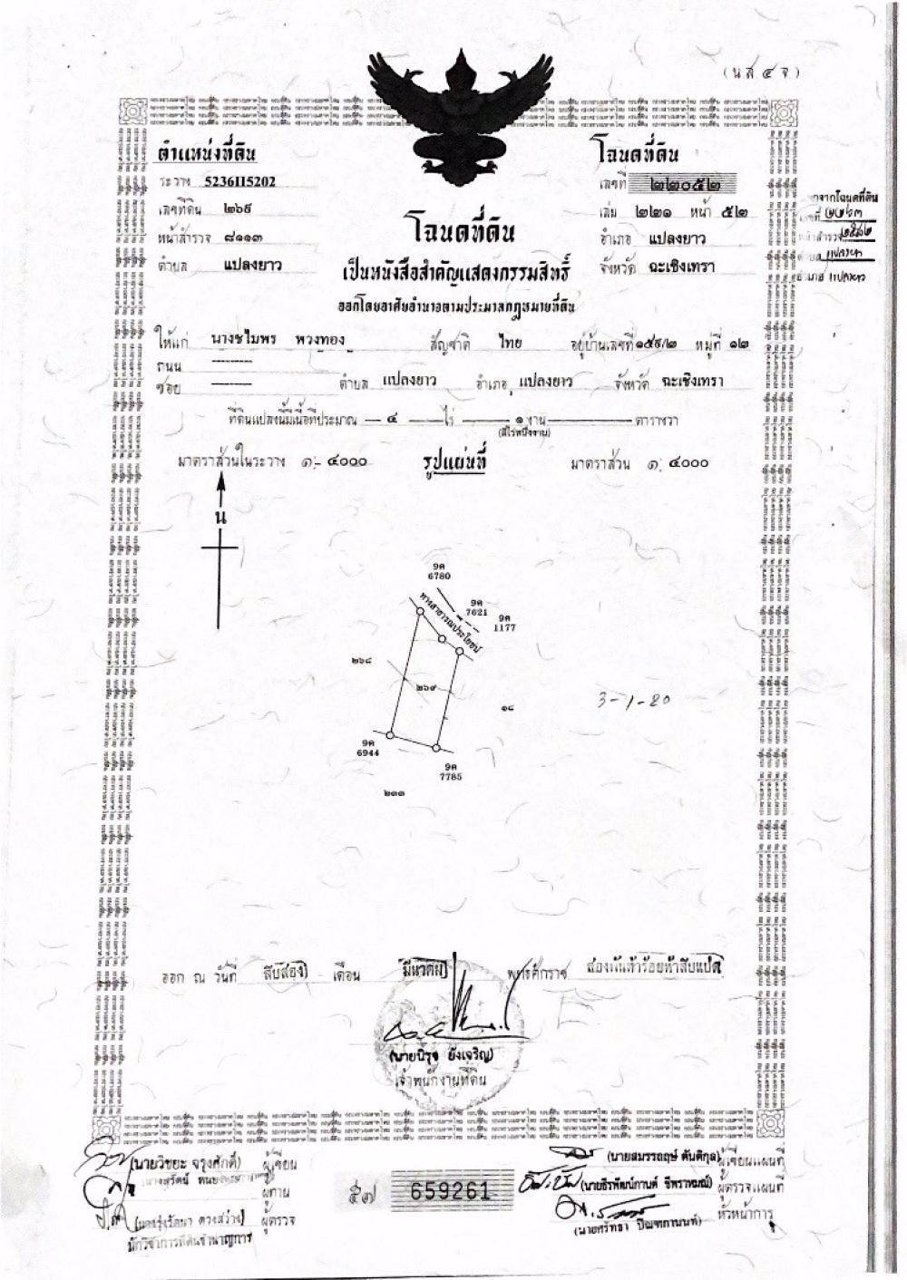 (น ส ๔ จ)
ตำแหน่งที่ดิน
ระวาง 5236II5202
เลขที่ดิน ๒๖๙
หน้าสำรวจ ๘๑๑๓
ตำบล แปลงยาว
โฉนดที่ดิน
เลขที่ ๒๒๐๕๒
เล่ม ๒๒๑ หน้า ๕๒
อำเภอ แปลงยาว
จังหวัด ฉะเชิงเทรา
จากโฉนดที่ดิน
หน้าสำรวจ
ตำบล แปลงยาว
อำเภอ แปลงยาว
โฉนดที่ดิน
เป็นหนังสือสำคัญแสดงกรรมสิทธิ์
ออกโดยอาศัยอำนาจตามประมวลกฎหมายที่ดิน
ให้แก่ นางชไมพร พวงทอง สัญชาติ ไทย อยู่บ้านเลขที่ ๑๕๙/๒ หมู่ที่ ๑๒
ถนน
ซอย ตำบล แปลงยาว อำเภอ แปลงยาว จังหวัด ฉะเชิงเทรา
ที่ดินแปลงนี้มีเนื้อที่ประมาณ — ๔ — ไร่ — ๑ งาน — ตารางวา
(สี่ไร่หนึ่งงาน)
มาตราส่วนในระวาง ๑:๔๐๐๐ รูปแผนที่ มาตราส่วน ๑:๔๐๐๐
น
9ค
6780
9ค
7621
9ค
1177
ทางสาธารณประโยชน์
๒๖๘
๒๖๙
๑๘
3-1-20
9ค
6944
9ค
7785
๒๓๓
ออก ณ วันที่ สิบสอง เดือน มีนาคม พุทธศักราช สองพันห้าร้อยห้าสิบแปด
(นายนิรุจ ยังเจริญ)
เจ้าพนักงานที่ดิน
(นายวิชยะ จรุงศักดิ์) ผู้เขียน
ผู้ทาน
ผู้ตรวจ
นักวิชาการที่ดินชำนาญการ
๕๗ 659261
(นายสมรรถฤษ์ ตันติกุล) ผู้เขียนแผนที่
ผู้ตรวจแผนที่
หัวหน้าการ